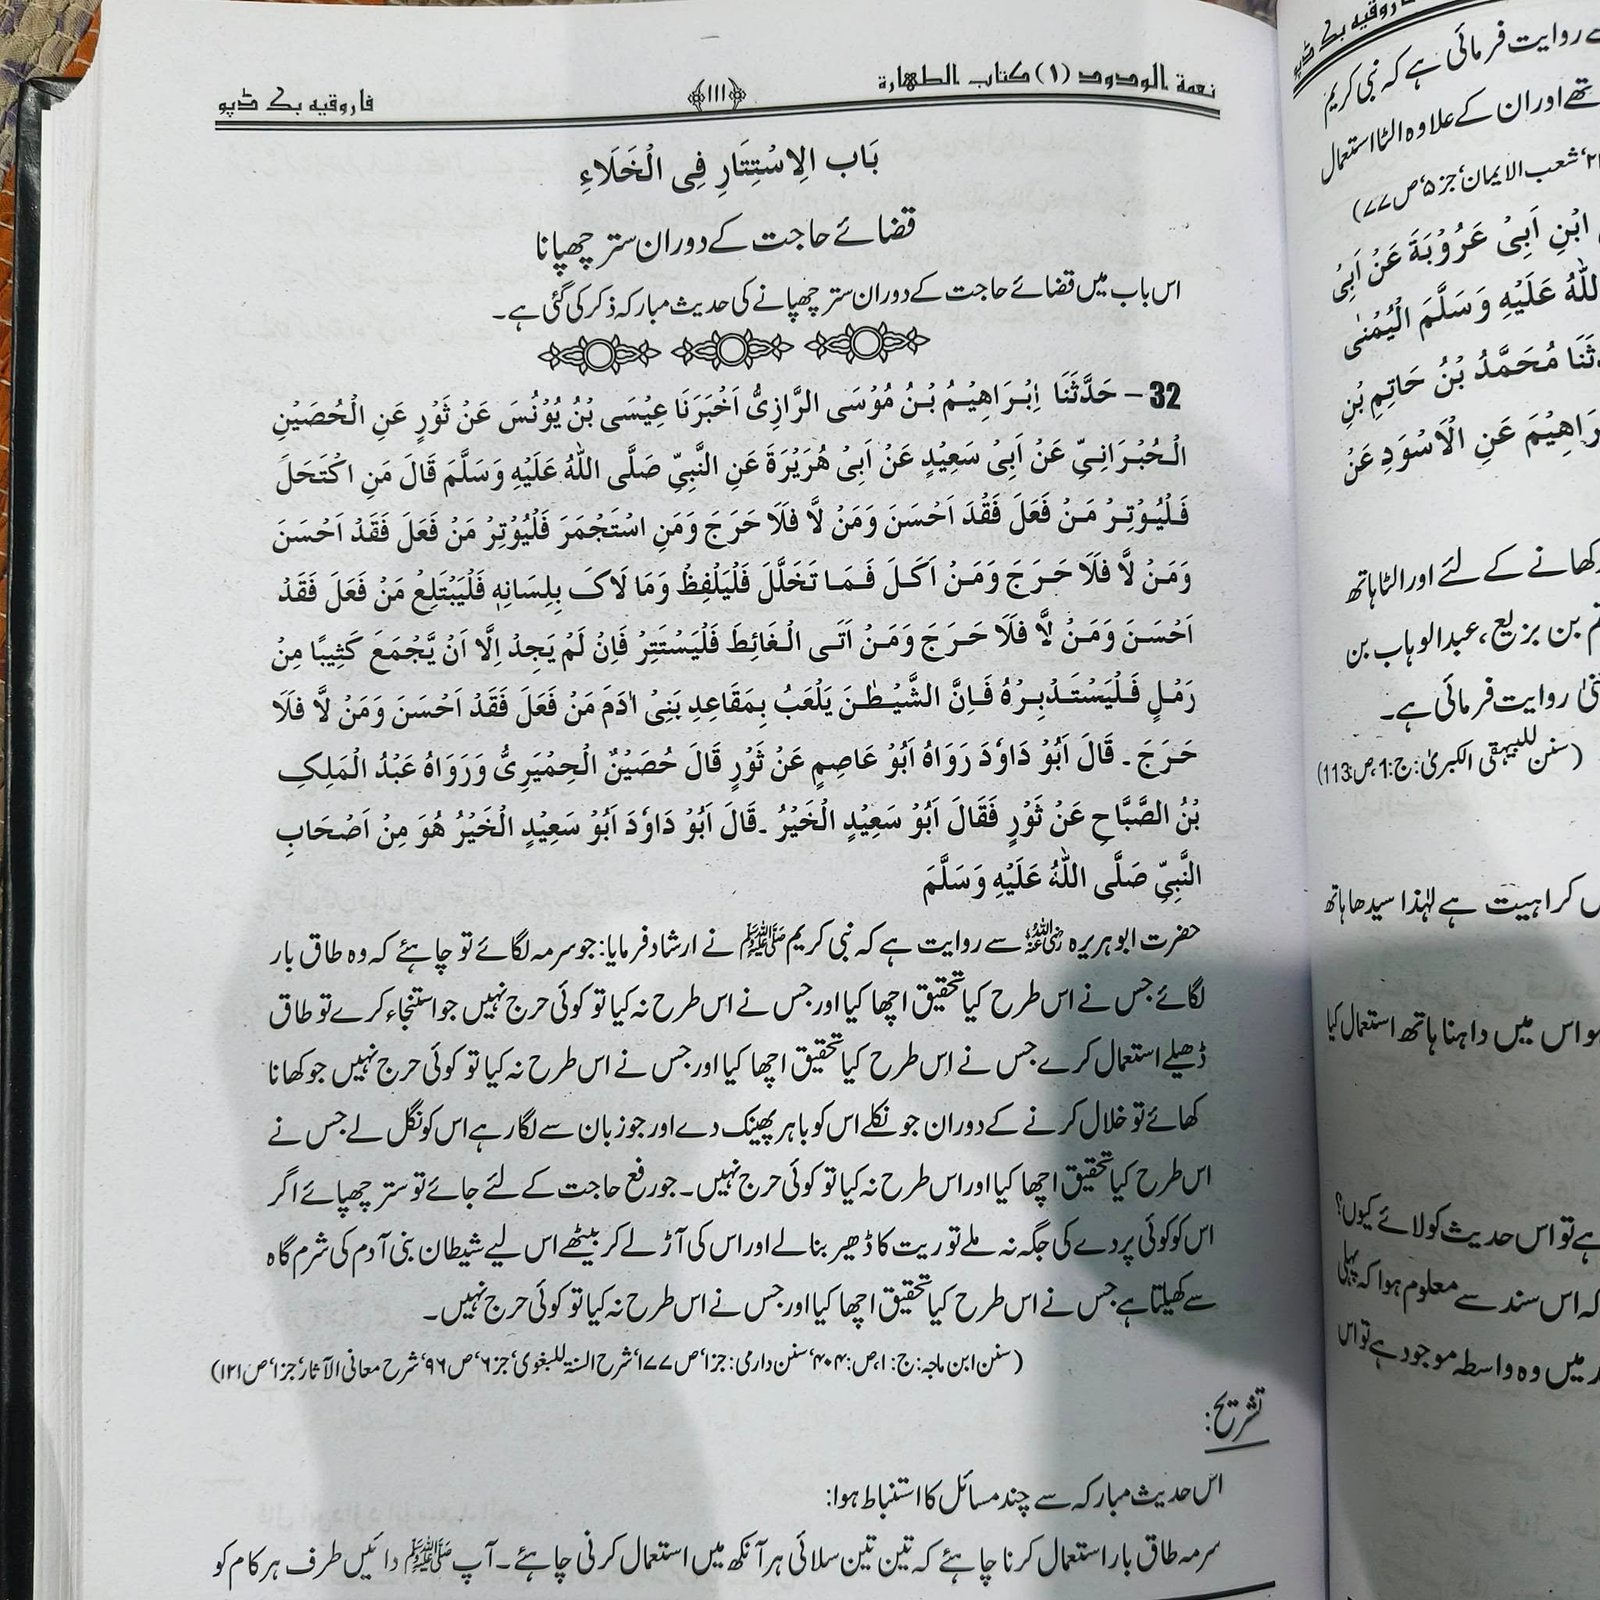 نعمة الودود (۱) کتاب الطهارة
﴿۱۱۱﴾
فاروقیہ بک ڈپو
بَاب الِاسْتِتَارِ فِی الْخَلَاءِ
قضائے حاجت کے دوران ستر چھپانا
اس باب میں قضائے حاجت کے دوران ستر چھپانے کی حدیث مبارکہ ذکر کی گئی ہے۔
32 – حَدَّثَنَا اِبْرَاهِیْمُ بْنُ مُوْسَی الرَّازِیُّ اَخْبَرَنَا عِیْسَی بْنُ یُوْنُسَ عَنْ ثَوْرٍ عَنِ الْحُصَیْنِ
الْحُبْرَانِیِّ عَنْ اَبِیْ سَعِیْدٍ عَنْ اَبِیْ هُرَیْرَةَ عَنِ النَّبِیِّ صَلَّی اللهُ عَلَیْهِ وَسَلَّمَ قَالَ مَنِ اکْتَحَلَ
فَلْیُوْتِرْ مَنْ فَعَلَ فَقْدَ اَحْسَنَ وَمَنْ لَّا فَلَا حَرَجَ وَمَنِ اسْتَجْمَرَ فَلْیُوْتِرْ مَنْ فَعَلَ فَقَدْ اَحْسَنَ
وَمَنْ لَّا فَلَا حَرَجَ وَمَنْ اَکَلَ فَمَا تَخَلَّلَ فَلْیَلْفِظْ وَمَا لَاکَ بِلِسَانِهٖ فَلْیَبْتَلِعْ مَنْ فَعَلَ فَقَدْ
اَحْسَنَ وَمَنْ لَّا فَلَا حَرَجَ وَمَنْ اَتَی الْغَائِطَ فَلْیَسْتَتِرْ فَاِنْ لَمْ یَجِدْ اِلَّا اَنْ یَّجْمَعَ کَثِیْبًا مِنْ
رَمْلٍ فَلْیَسْتَدْبِرْهُ فَاِنَّ الشَّیْطٰنَ یَلْعَبُ بِمَقَاعِدِ بَنِیْ اٰدَمَ مَنْ فَعَلَ فَقَدْ اَحْسَنَ وَمَنْ لَّا فَلَا
حَرَجَ ۔ قَالَ اَبُوْ دَاوٗدَ رَوَاهُ اَبُوْ عَاصِمٍ عَنْ ثَوْرٍ قَالَ حُصَیْنٌ الْحِمْیَرِیُّ وَرَوَاهُ عَبْدُ الْمَلِکِ
بْنُ الصَّبَّاحِ عَنْ ثَوْرٍ فَقَالَ اَبُوْ سَعِیْدٍ الْخَیْرُ ۔قَالَ اَبُوْ دَاوٗدَ اَبُوْ سَعِیْدٍ الْخَیْرُ هُوَ مِنْ اَصْحَابِ
النَّبِیِّ صَلَّی اللهُ عَلَیْهِ وَسَلَّمَ
حضرت ابو ہریرہ رضی اللہ عنہ سے روایت ہے کہ نبی کریم ﷺ نے ارشاد فرمایا: جو سرمہ لگائے تو چاہئے کہ وہ طاق بار
لگائے جس نے اس طرح کیا تحقیق اچھا کیا اور جس نے اس طرح نہ کیا تو کوئی حرج نہیں جو استنجاء کرے تو طاق
ڈھیلے استعمال کرے جس نے اس طرح کیا تحقیق اچھا کیا اور جس نے اس طرح نہ کیا تو کوئی حرج نہیں جو کھانا
کھائے تو خلال کرنے کے دوران جو نکلے اس کو باہر پھینک دے اور جو زبان سے لگا رہے اس کو نگل لے جس نے
اس طرح کیا تحقیق اچھا کیا اور اس طرح نہ کیا تو کوئی حرج نہیں۔ جو رفع حاجت کے لئے جائے تو ستر چھپائے اگر
اس کو کوئی پردے کی جگہ نہ ملے تو ریت کا ڈھیر بنا لے اور اس کی آڑ لے کر بیٹھے اس لیے شیطان بنی آدم کی شرم گاہ
سے کھیلتا ہے جس نے اس طرح کیا تحقیق اچھا کیا اور جس نے اس طرح نہ کیا تو کوئی حرج نہیں۔
(سنن ابن ماجہ: ج: ۱، ص: ۴۰۴، سنن دارمی: جز ۱، ص ۱۷۷، شرح السنۃ للبغوی، جز ۶، ص ۹۶، شرح معانی الآثار، جز ۱، ص ۱۲۱)
تشریح:
اس حدیث مبارکہ سے چند مسائل کا استنباط ہوا:
سرمہ طاق بار استعمال کرنا چاہئے کہ تین تین سلائی ہر آنکھ میں استعمال کرنی چاہئے۔ آپ ﷺ دائیں طرف ہر کام کو
فاروقیہ بک ڈپو
روایت فرمائی ہے کہ نبی کریم
تھے اور ان کے علاوہ الٹا استعمال
شعب الایمان، جز ۵، ص ۷۷)
ابْنِ اَبِیْ عَرُوْبَةَ عَنْ اَبِیْ
اللهُ عَلَیْهِ وَسَلَّمَ الْیُمْنٰی
مُحَمَّدُ بْنُ حَاتِمِ بْنِ
عَنِ الْاَسْوَدِ عَنْ
کھانے کے لئے اور الٹا ہاتھ
بن بزیع، عبدالوہاب بن
روایت فرمائی ہے۔
(سنن للبیہقی الکبریٰ: ج: 1، ص: 113)
کراہیت ہے لہٰذا سیدھا ہاتھ
اس میں داہنا ہاتھ استعمال کیا
ہے تو اس حدیث کو لائے کیوں؟
کہ اس سند سے معلوم ہوا کہ پہلی
میں وہ واسطہ موجود ہے تو اس